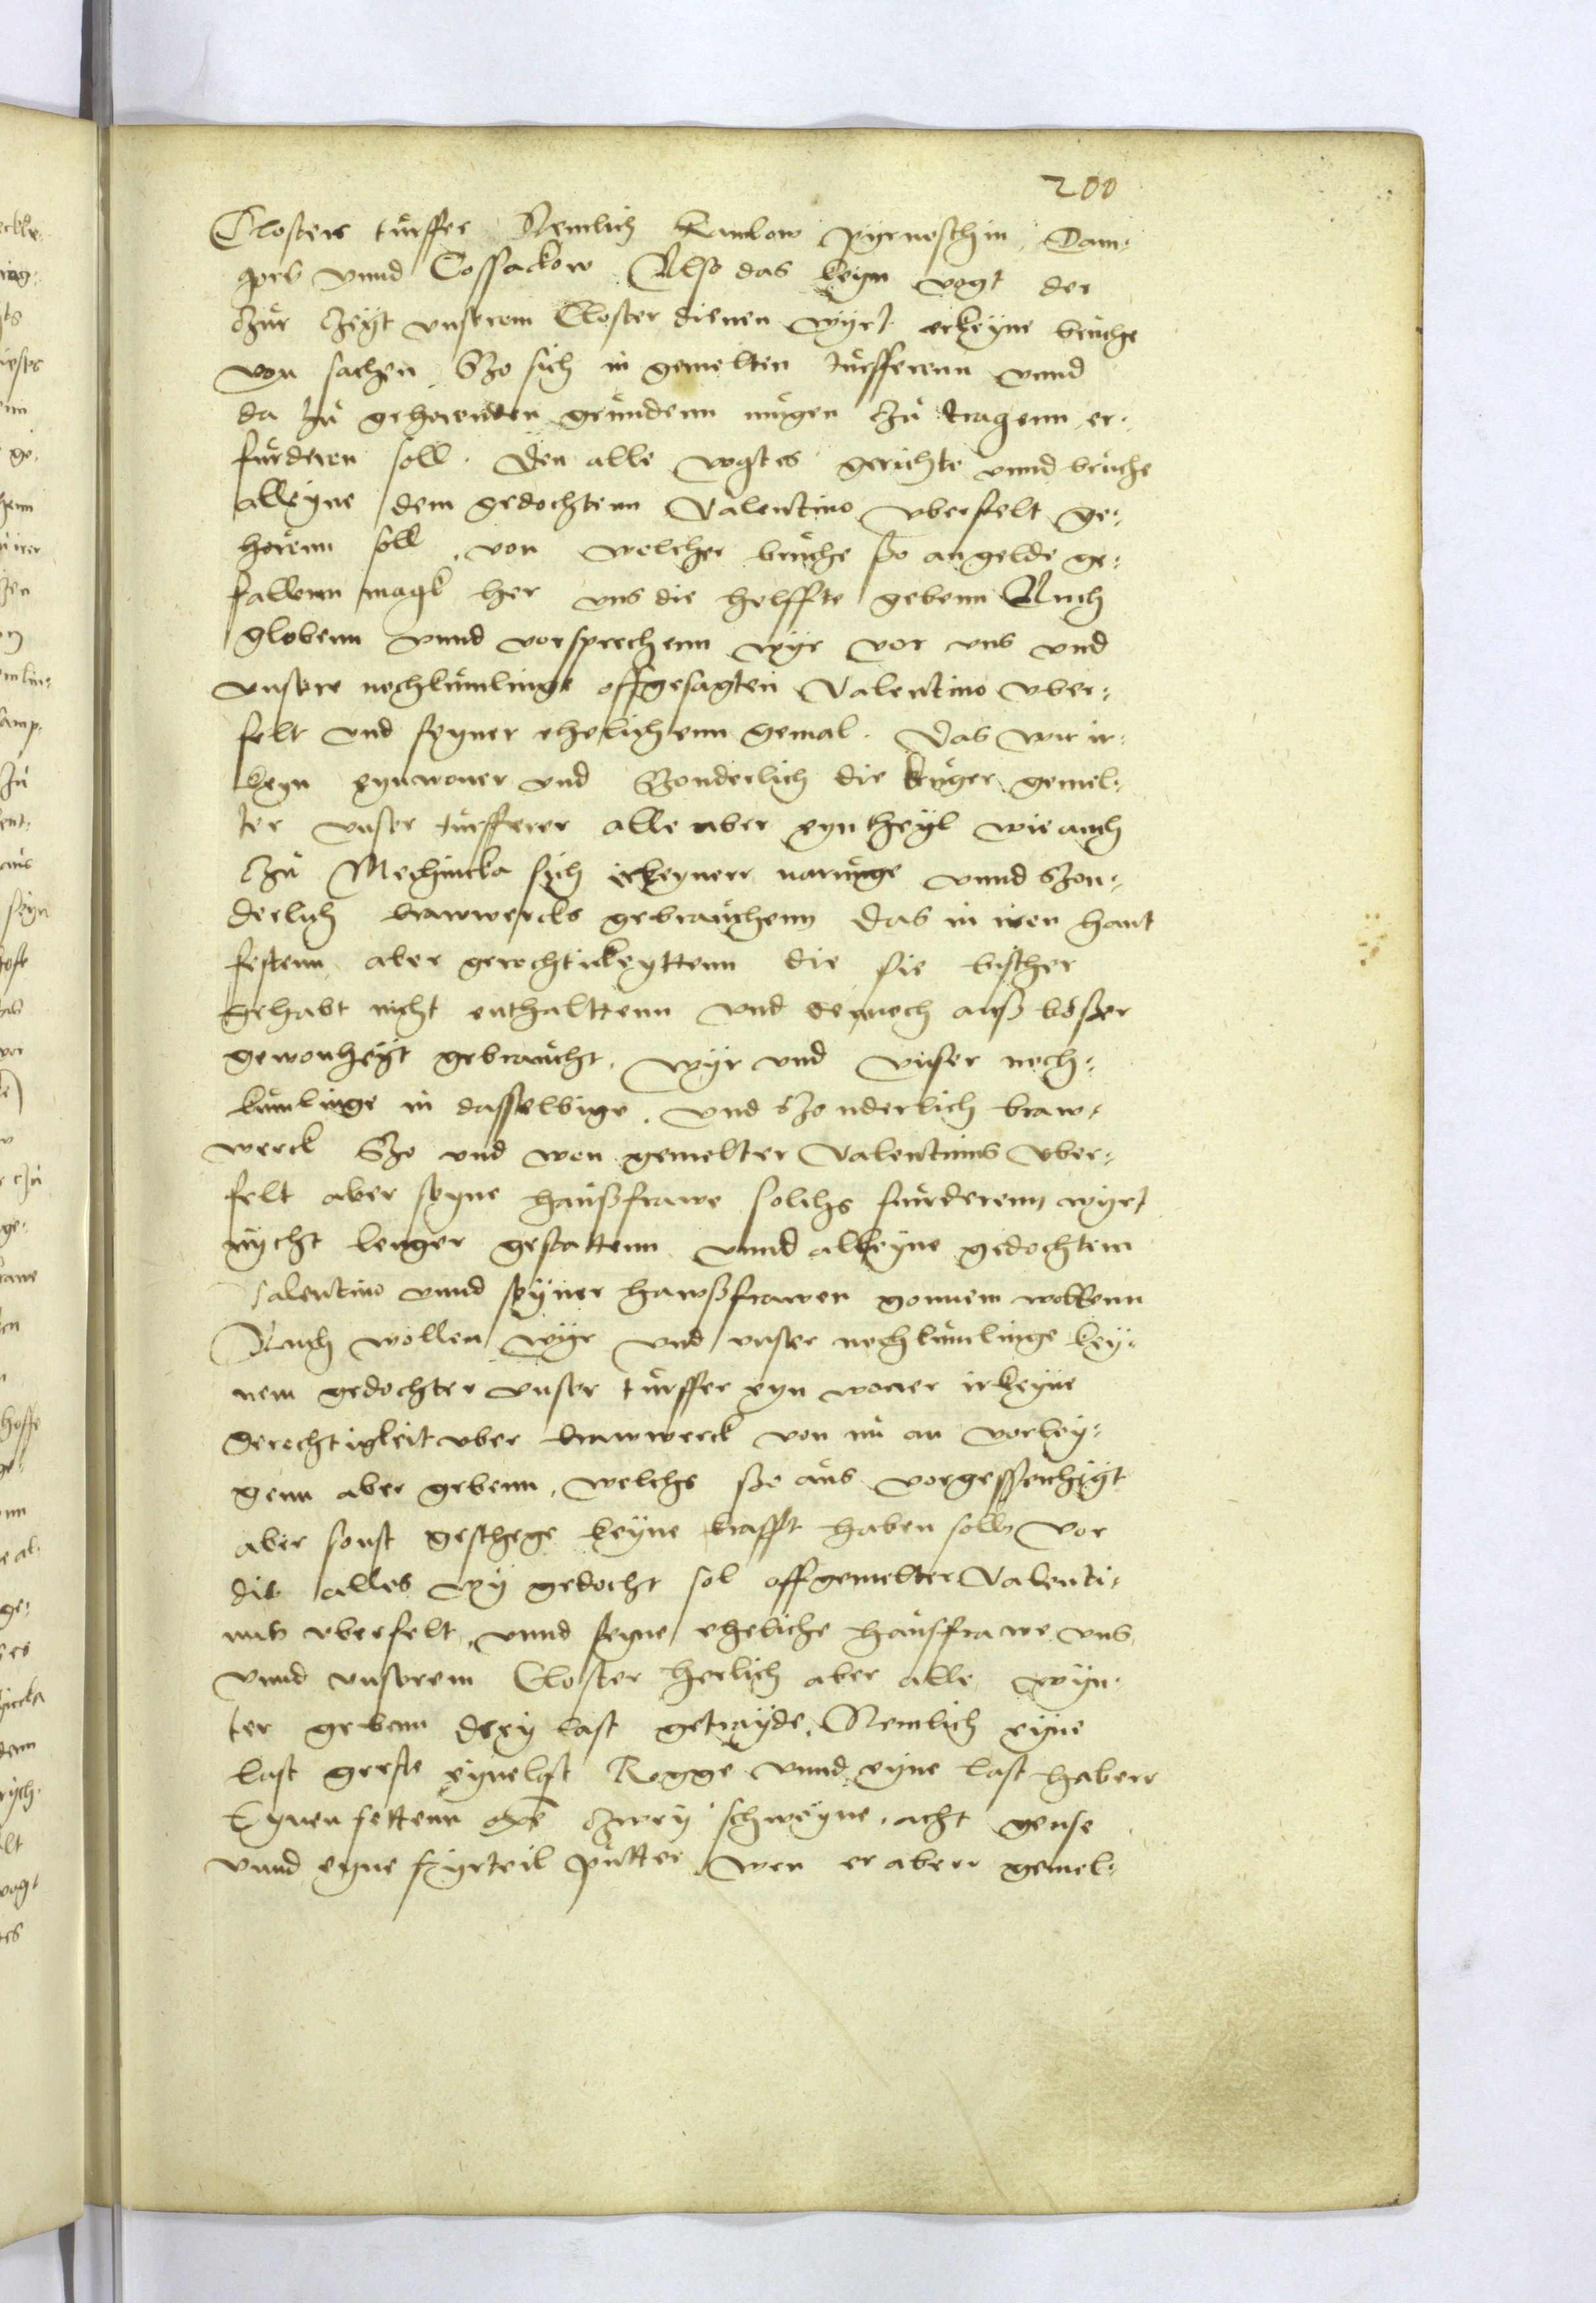 200
Closters turffer Nemlich Ramlow pyrnoschin Dam-
gorb vnnd Cossackow Also das keyn vogt der
Zur Zeyt vnserem Closter dienen wyrt erkeyne bruche
von sachen Szo sich in gemelten turfferenn vnnd
da zu gehorenden grundenn mugen zu tragenn er-
furderen soll. Den alle vogtes gerichte vnnd bruche
alleyne dem gedochtenn Valentino vberfelt ge-
horenn soll, von welcher bruche szo an gelde ge-
fallenn magk her vns die helffte gebenn Auch
globenn vnnd vorsprechenn wyr vor vns vnd
vnsere nochkumlinge offgesagten Valentino vber-
felt vnd seyner ehelichenn gemal. Das wir ir-
keyn eynwoner vnd Szonderlich die kruger gemel-
ter vnser turfferer alle aber eyn theyl wie auch
Zu Mechincka sich irkeynerr narunge vnnd Szon-
derlich brawwercks gebrauchenn das in iren hant
festenn aber gerechtickeyttenn die sie bisher
gehabt nicht enthalttenn vnd dennoch auß boßer
gewonheyt gebraucht. wyr vnd vnser noch-
kumlinge in dasselbige, vnd Szonderlich braw-
werck Szo vnd wen gemelter Valentinus vber-
felt aber seyne haußfrawe solichs furderenn wyrt
nycht lenger gestattenn vnnd alleyne gedochtem
Valentino vnnd seyner hawßfrawen gonnenn wollenn
Auch wollen wyr vnd vnser nochkumlinge key-
nem gedochter vnser turffer eyn woner irkeyne
Gerechtigkeit vber brawwerck von nu an vorley-
genn aber gebenn, welchs szo aus vorgessenheyt
aber sonst geschege keyne krafft haben soll vor
dis alles wy gedocht sol offgemelter Valenti-
nus vberfelt, vnnd seyne eheliche hausfrawe vns
vnnd vnserem Closter herlich aber alle wyn-
ter gebenn drey last getrayde. Nemlich eyne
last gerste eyne last Rogge vnnd eyne last haberr
Eynen fettenn oxe zwey schweyne, acht gense
vnnd eyne fyrteil putter wen er aberr gemel-